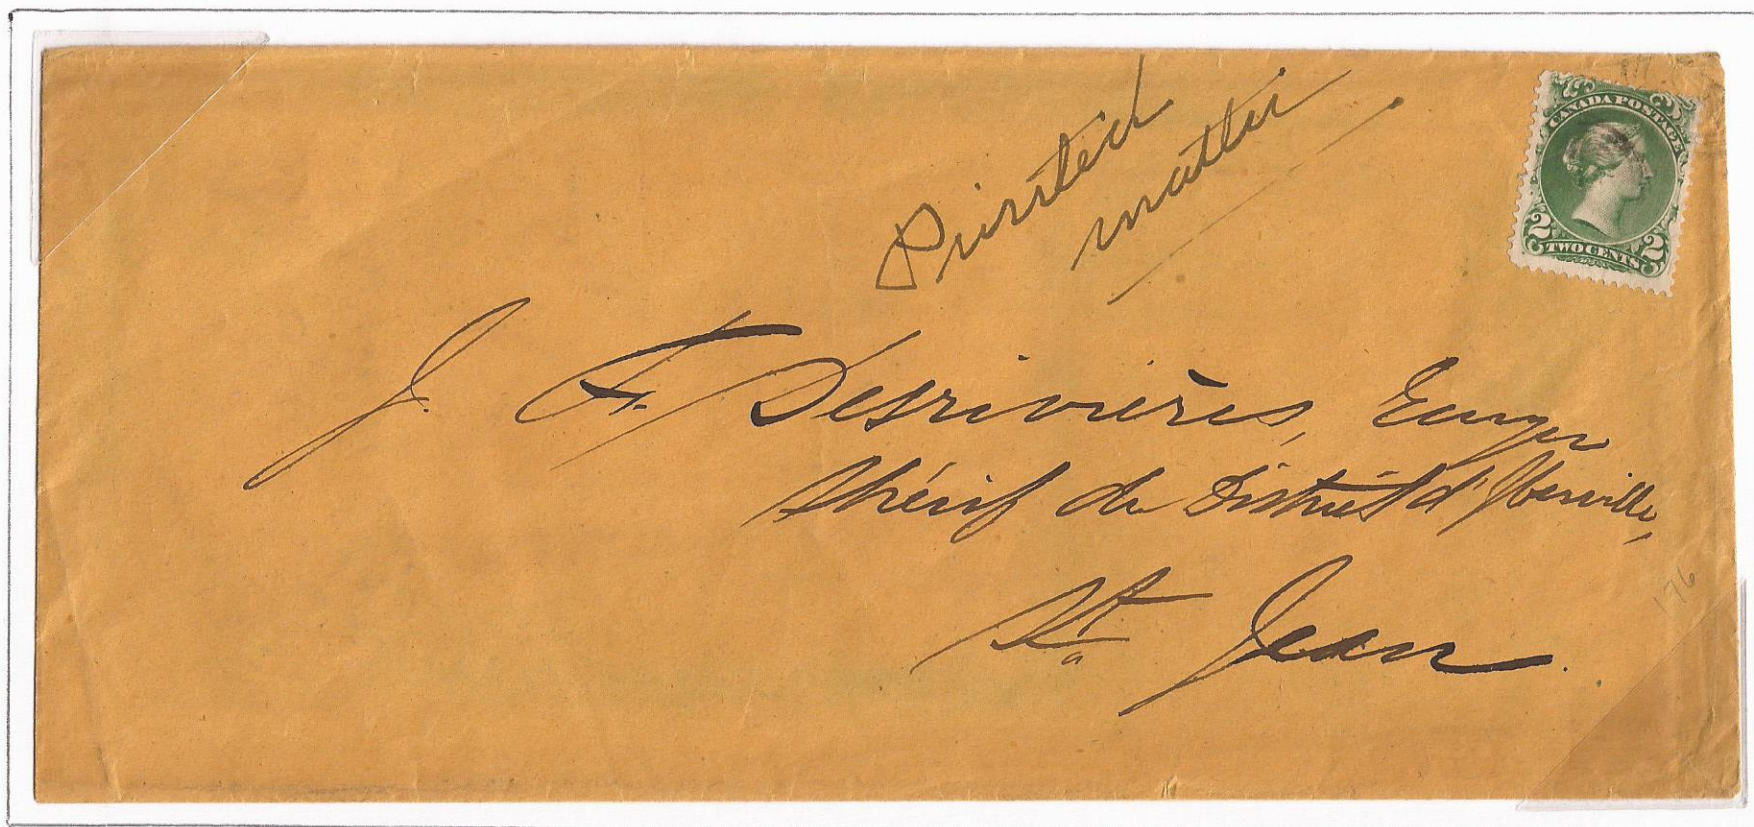 Printed
matter
CANADA POSTAGE
2 2
TWO CENTS
J. F. Desrivières, Ecuyer
Shérif du District d'Iberville,
St. Jean.
176